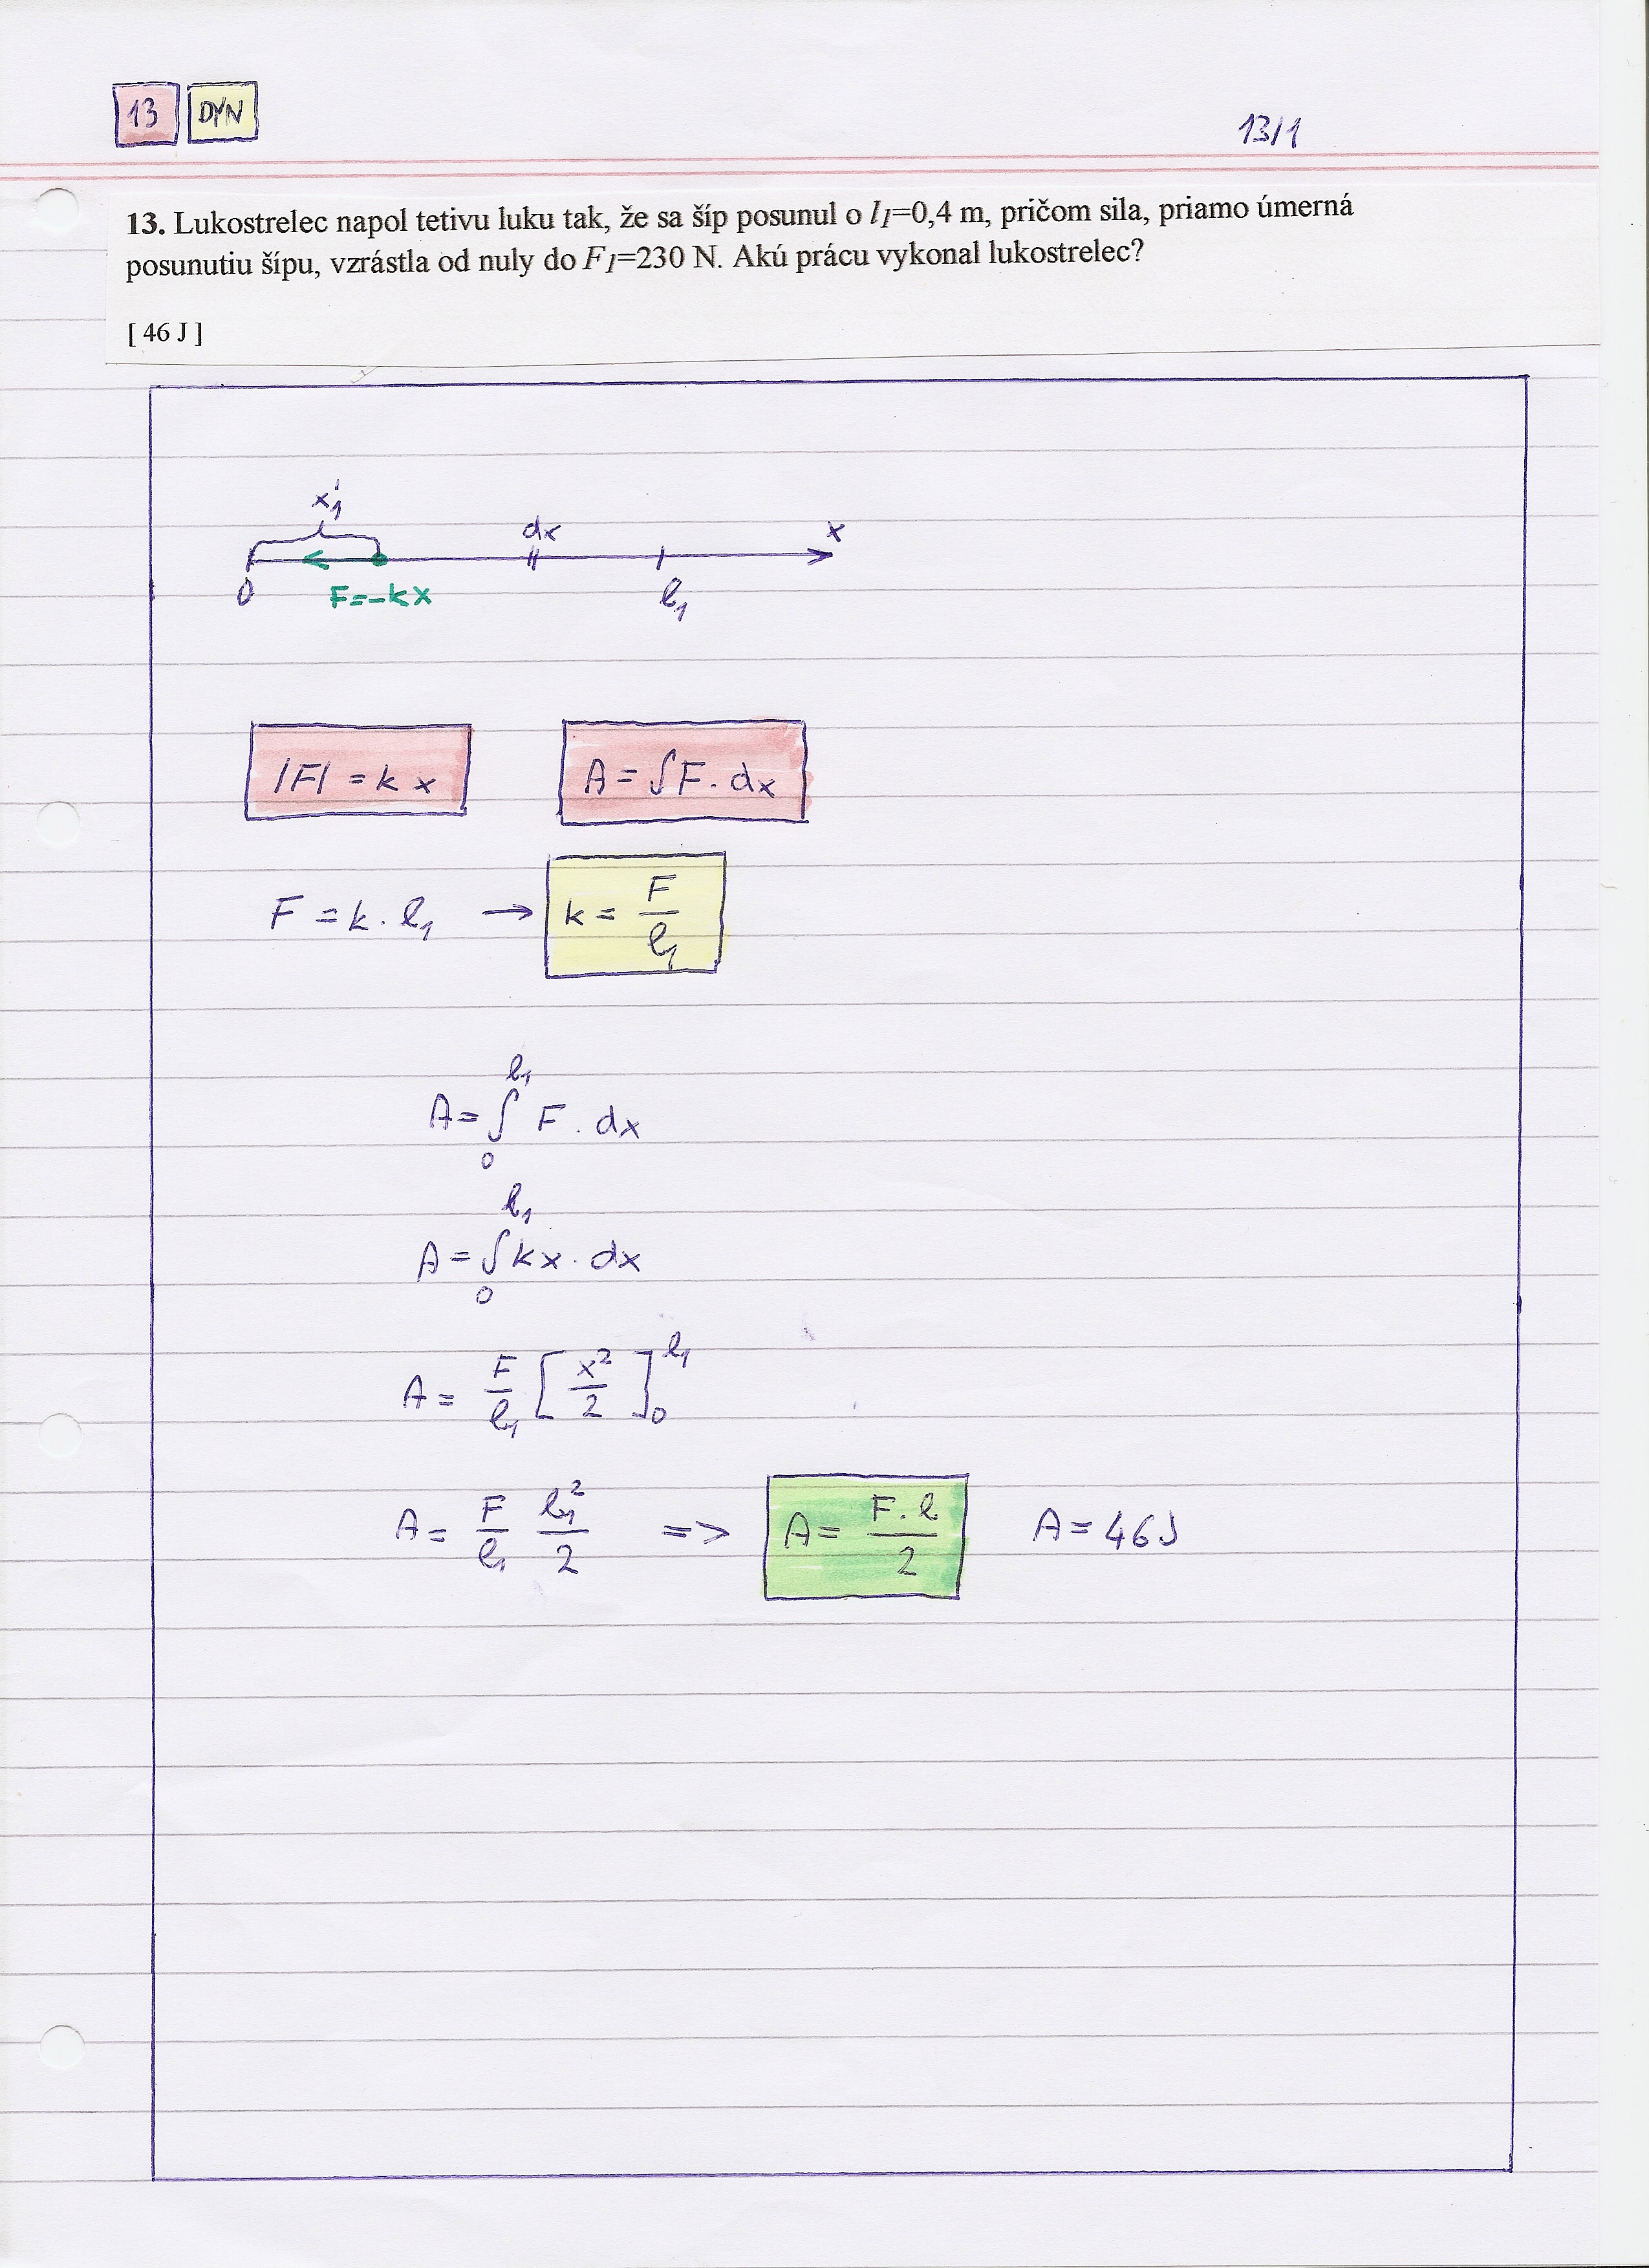 13 DYN
13/1
13. Lukostrelec napol tetivu luku tak, že sa šíp posunul o l1=0,4 m, pričom sila, priamo úmerná
posunutiu šípu, vzrástla od nuly do F1=230 N. Akú prácu vykonal lukostrelec?
[ 46 J ]
x1
dx x
0 F=-kx l1
|F| = k x A = ∫F. dx
F = k . l1 → k = F/l1
A = ∫₀^l1 F . dx
A = ∫₀^l1 kx . dx
A = F/l1 [x²/2]₀^l1
A = F/l1 l1²/2 => A = F. l/2 A = 46J